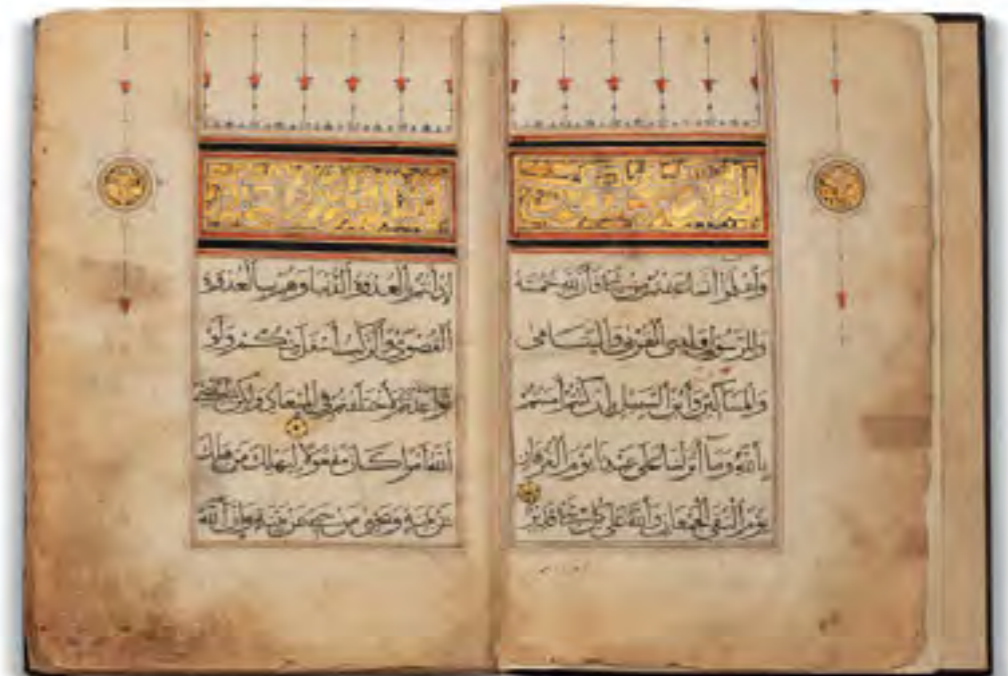 وَاعْلَمُوا أَنَّمَا غَنِمْتُمْ مِنْ شَيْءٍ فَأَنَّ لِلَّهِ خُمُسَهُ
وَلِلرَّسُولِ وَلِذِي الْقُرْبَى وَالْيَتَامَى
وَالْمَسَاكِينِ وَابْنِ السَّبِيلِ إِنْ كُنْتُمْ آمَنْتُمْ
بِاللَّهِ وَمَا أَنْزَلْنَا عَلَى عَبْدِنَا يَوْمَ الْفُرْقَانِ
يَوْمَ الْتَقَى الْجَمْعَانِ وَاللَّهُ عَلَى كُلِّ شَيْءٍ قَدِيرٌ
إِذْ أَنْتُمْ بِالْعُدْوَةِ الدُّنْيَا وَهُمْ بِالْعُدْوَةِ
الْقُصْوَى وَالرَّكْبُ أَسْفَلَ مِنْكُمْ وَلَوْ
تَوَاعَدْتُمْ لَاخْتَلَفْتُمْ فِي الْمِيعَادِ وَلَكِنْ لِيَقْضِيَ
اللَّهُ أَمْرًا كَانَ مَفْعُولًا لِيَهْلِكَ مَنْ هَلَكَ
عَنْ بَيِّنَةٍ وَيَحْيَى مَنْ حَيَّ عَنْ بَيِّنَةٍ وَإِنَّ اللَّهَ